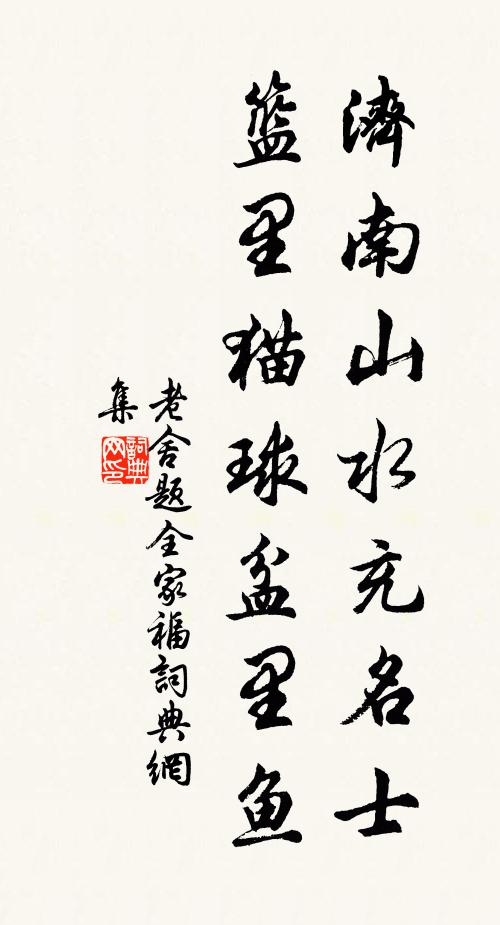 濟南山水充名士
籃里猫球盆里鱼
老舍题全家福詞典網
集
詞典网印